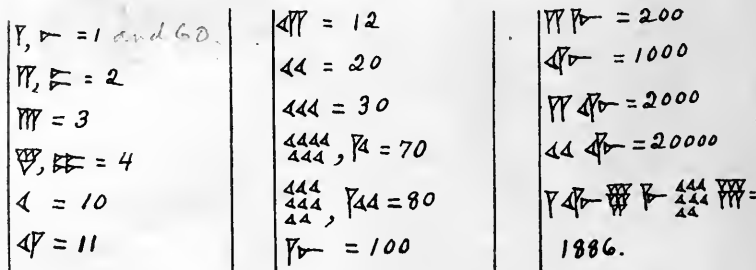 𒁹, 𒀸 = 1 and 60.
𒈫, 𒐀 = 2
𒐈 = 3
𒐉, 𒐂 = 4
𒌋 = 10
𒌋𒁹 = 11
𒌋𒈫 = 12
𒌋𒌋 = 20
𒌋𒌋𒌋 = 30
𒌋𒌋𒌋𒌋𒌋𒌋𒌋, 𒁹𒌋 = 70
𒌋𒌋𒌋𒌋𒌋𒌋𒌋𒌋, 𒁹𒌋𒌋 = 80
𒈨 = 100
𒈫 𒈨 = 200
𒌋𒈨 = 1000
𒈫 𒌋𒈨 = 2000
𒌋𒌋 𒌋𒈨 = 20000
𒁹 𒌋𒈨 𒐍 𒈨 𒌋𒌋𒌋𒌋𒌋𒌋𒌋𒌋 𒐋 =
1886.